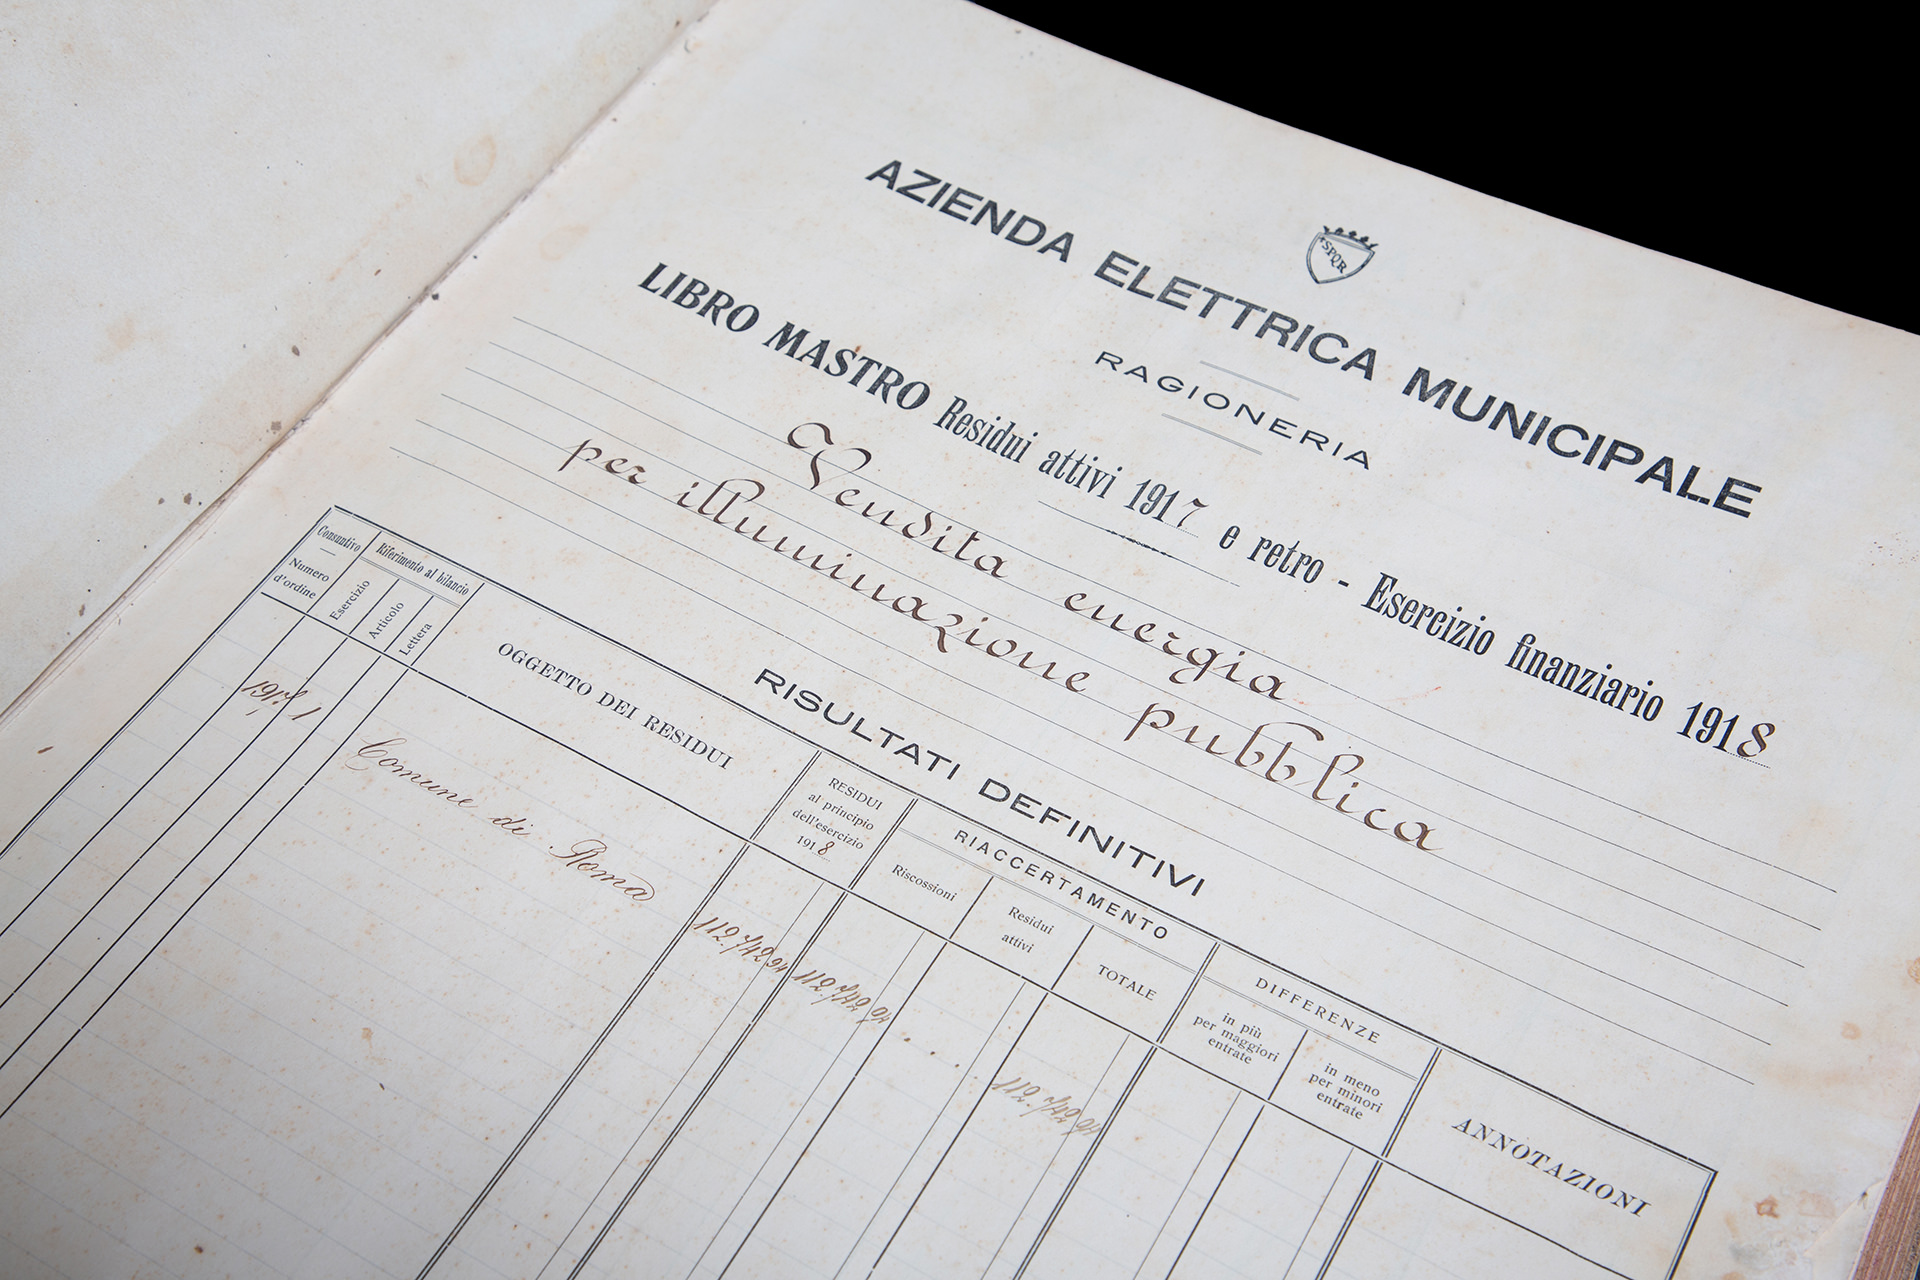 SPQR
AZIENDA ELETTRICA MUNICIPALE
RAGIONERIA
LIBRO MASTRO Residui attivi 1917 e retro - Esercizio finanziario 1918
Vendita energia
per illuminazione pubblica
RISULTATI DEFINITIVI
Consuntivo
Numero
d'ordine
Riferimento al bilancio
Esercizio
Articolo
Lettera
OGGETTO DEI RESIDUI
RESIDUI
al principio
dell'esercizio
1918
RIACCERTAMENTO
Riscossioni
Residui
attivi
TOTALE
DIFFERENZE
in più
per maggiori
entrate
in meno
per minori
entrate
ANNOTAZIONI
1917 1
Comune di Roma
112.742 94
112.742 94
112.742 94